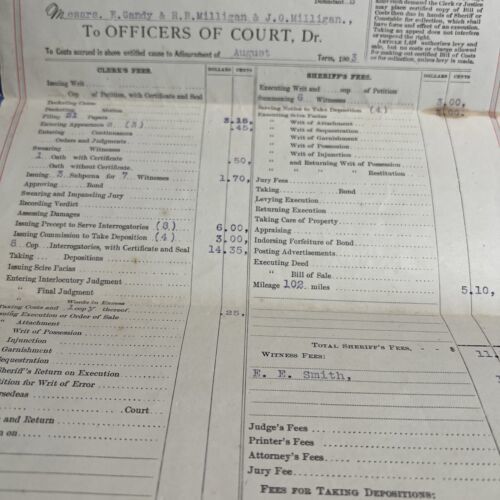 Defendant S
Messrs, E. Gandy & H.E. Milligan & J.O. Milligan.,
To OFFICERS OF COURT, Dr.
To Costs accrued in above entitled cause to Adjournment of August Term, 1903
such demand the Clerk or Justice
may place certified copy of Bill of
Costs due in hands of Sheriff or
Constable for collection, which shall
have force and effect of an execution.
Taking an appeal does not interfere
or suspend the right.
ARTICLE LAW authorizes levy and
sale, but no costs or charge allowed
for making out certified Bill of Costs
or for collection, unless levy is made.
CLERK'S FEES. DOLLARS CENTS
Issuing Writ
Cop. of Petition, with Certificate and Seal
Docketing Cause
Docketing Motion
Filing 21 Papers 3.15
Entering Appearance 2 (3) .45
Entering Continuances
Orders and Judgments
Swearing Witnesses
1 Oath with Certificate .50
Oath without Certificate
Issuing 3 Subpœna for 7 Witnesses 1.70
Approving Bond
Swearing and Impanelling Jury
Recording Verdict
Assessing Damages
Issuing Precept to Serve Interrogatories (3) 6.00
Issuing Commission to Take Deposition (4) 3.00
8 Cop. Interrogatories, with Certificate and Seal 14.35
Taking Depositions
Issuing Scire Facias
Entering Interlocutory Judgment
" Final Judgment
" Words in Excess
Taxing Costs and 1 copy thereof .25
Issuing Execution or Order of Sale
" Attachment
" Writ of Possession
Injunction
Garnishment
Sequestration
Sheriff's Return on Execution
Petition for Writ of Error
Supersedeas
Court
and Return
on
SHERIFF'S FEES. DOLLARS CENTS
Executing Writ and cop of Petition
Summoning 6 Witness 3.00
Serving Notice to Take Deposition (4) 3.00
Executing Scire Facias
" Writ of Attachment
" Writ of Sequestration
" Writ of Garnishment
" Writ of Possession
" Writ of Injunction
" and Returning Writ of Possession
" " " " Restitution
Jury Fee
Taking Bond
Levying Execution
Returning Execution
Taking Care of Property
Appraising
Indorsing Forfeiture of Bond
Posting Advertisements
Executing Deed
" Bill of Sale
Mileage 102 miles 5.10
TOTAL SHERIFF'S FEES, - $ 11
WITNESS FEES:
E. E. Smith,
Judge's Fees
Printer's Fees
Attorney's Fees
Jury Fee
FEES FOR TAKING DEPOSITIONS: